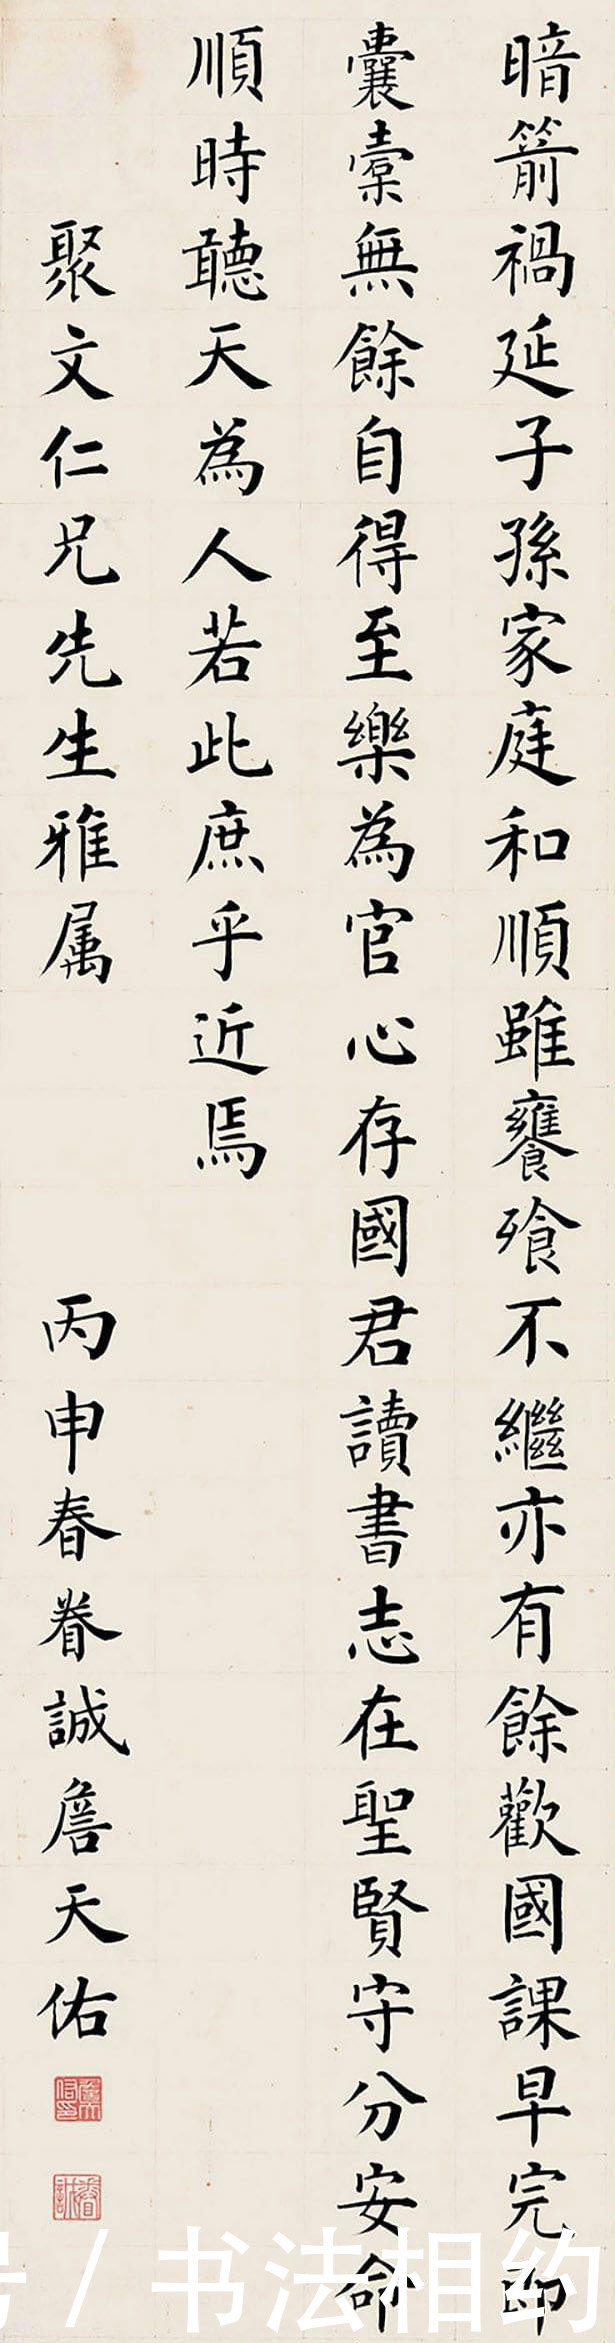 暗箭禍延子孫家庭和順雖饔飱不繼亦有餘歡國課早完即
囊橐無餘自得至樂為官心存國君讀書志在聖賢守分安命
順時聽天為人若此庶乎近焉
聚文仁兄先生雅属
丙申春眷誠詹天佑
号/书法相约